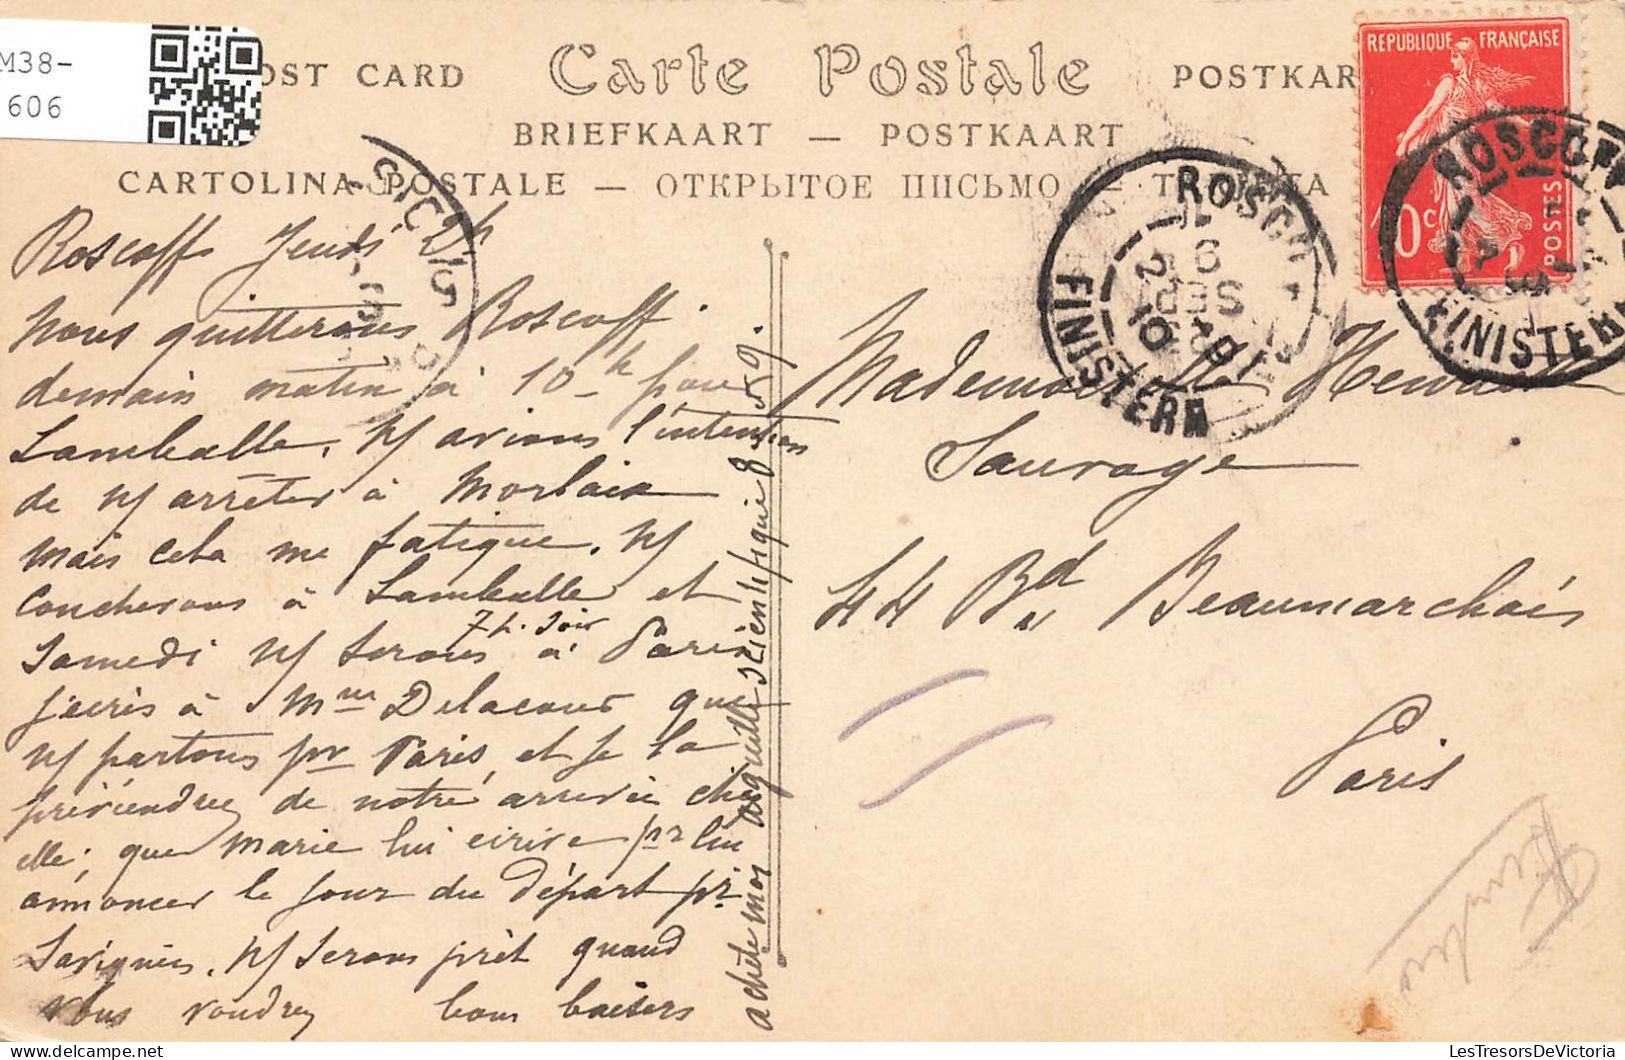 M38-
606
POST CARD Carte Postale POSTKAR
BRIEFKAART — POSTKAART
CARTOLINA POSTALE — ОТКРЫТОЕ ПИСЬМО —
REPUBLIQUE FRANÇAISE
10c POSTES
ROSCOFF
FINISTERE
ROSCOFF
FINISTERE
Roscoff Jeudi 2h
Nous quitterons Roscoff
demain matin à 10h pour
Lamballe. Ns avions l'intention
de ns arrêter à Morlaix
mais cela me fatigue. Ns
coucherons à Lamballe et
Samedi ns serons 7h. soir à Paris
j'écris à Mme Delacour que
ns partons pr Paris, et je la
préviendrez de notre arrivée chez
elle; que Marie lui écrive pr lui
annoncer le jour du départ pr
Savignies. Ns serons prêt quand
vous voudrez bons baisers
achète moi aiguille scientifique 8 et 9.
Mademoiselle Henriette
Sauvage
44 Bd Beaumarchais
Paris
LesTresorsDeVictoria